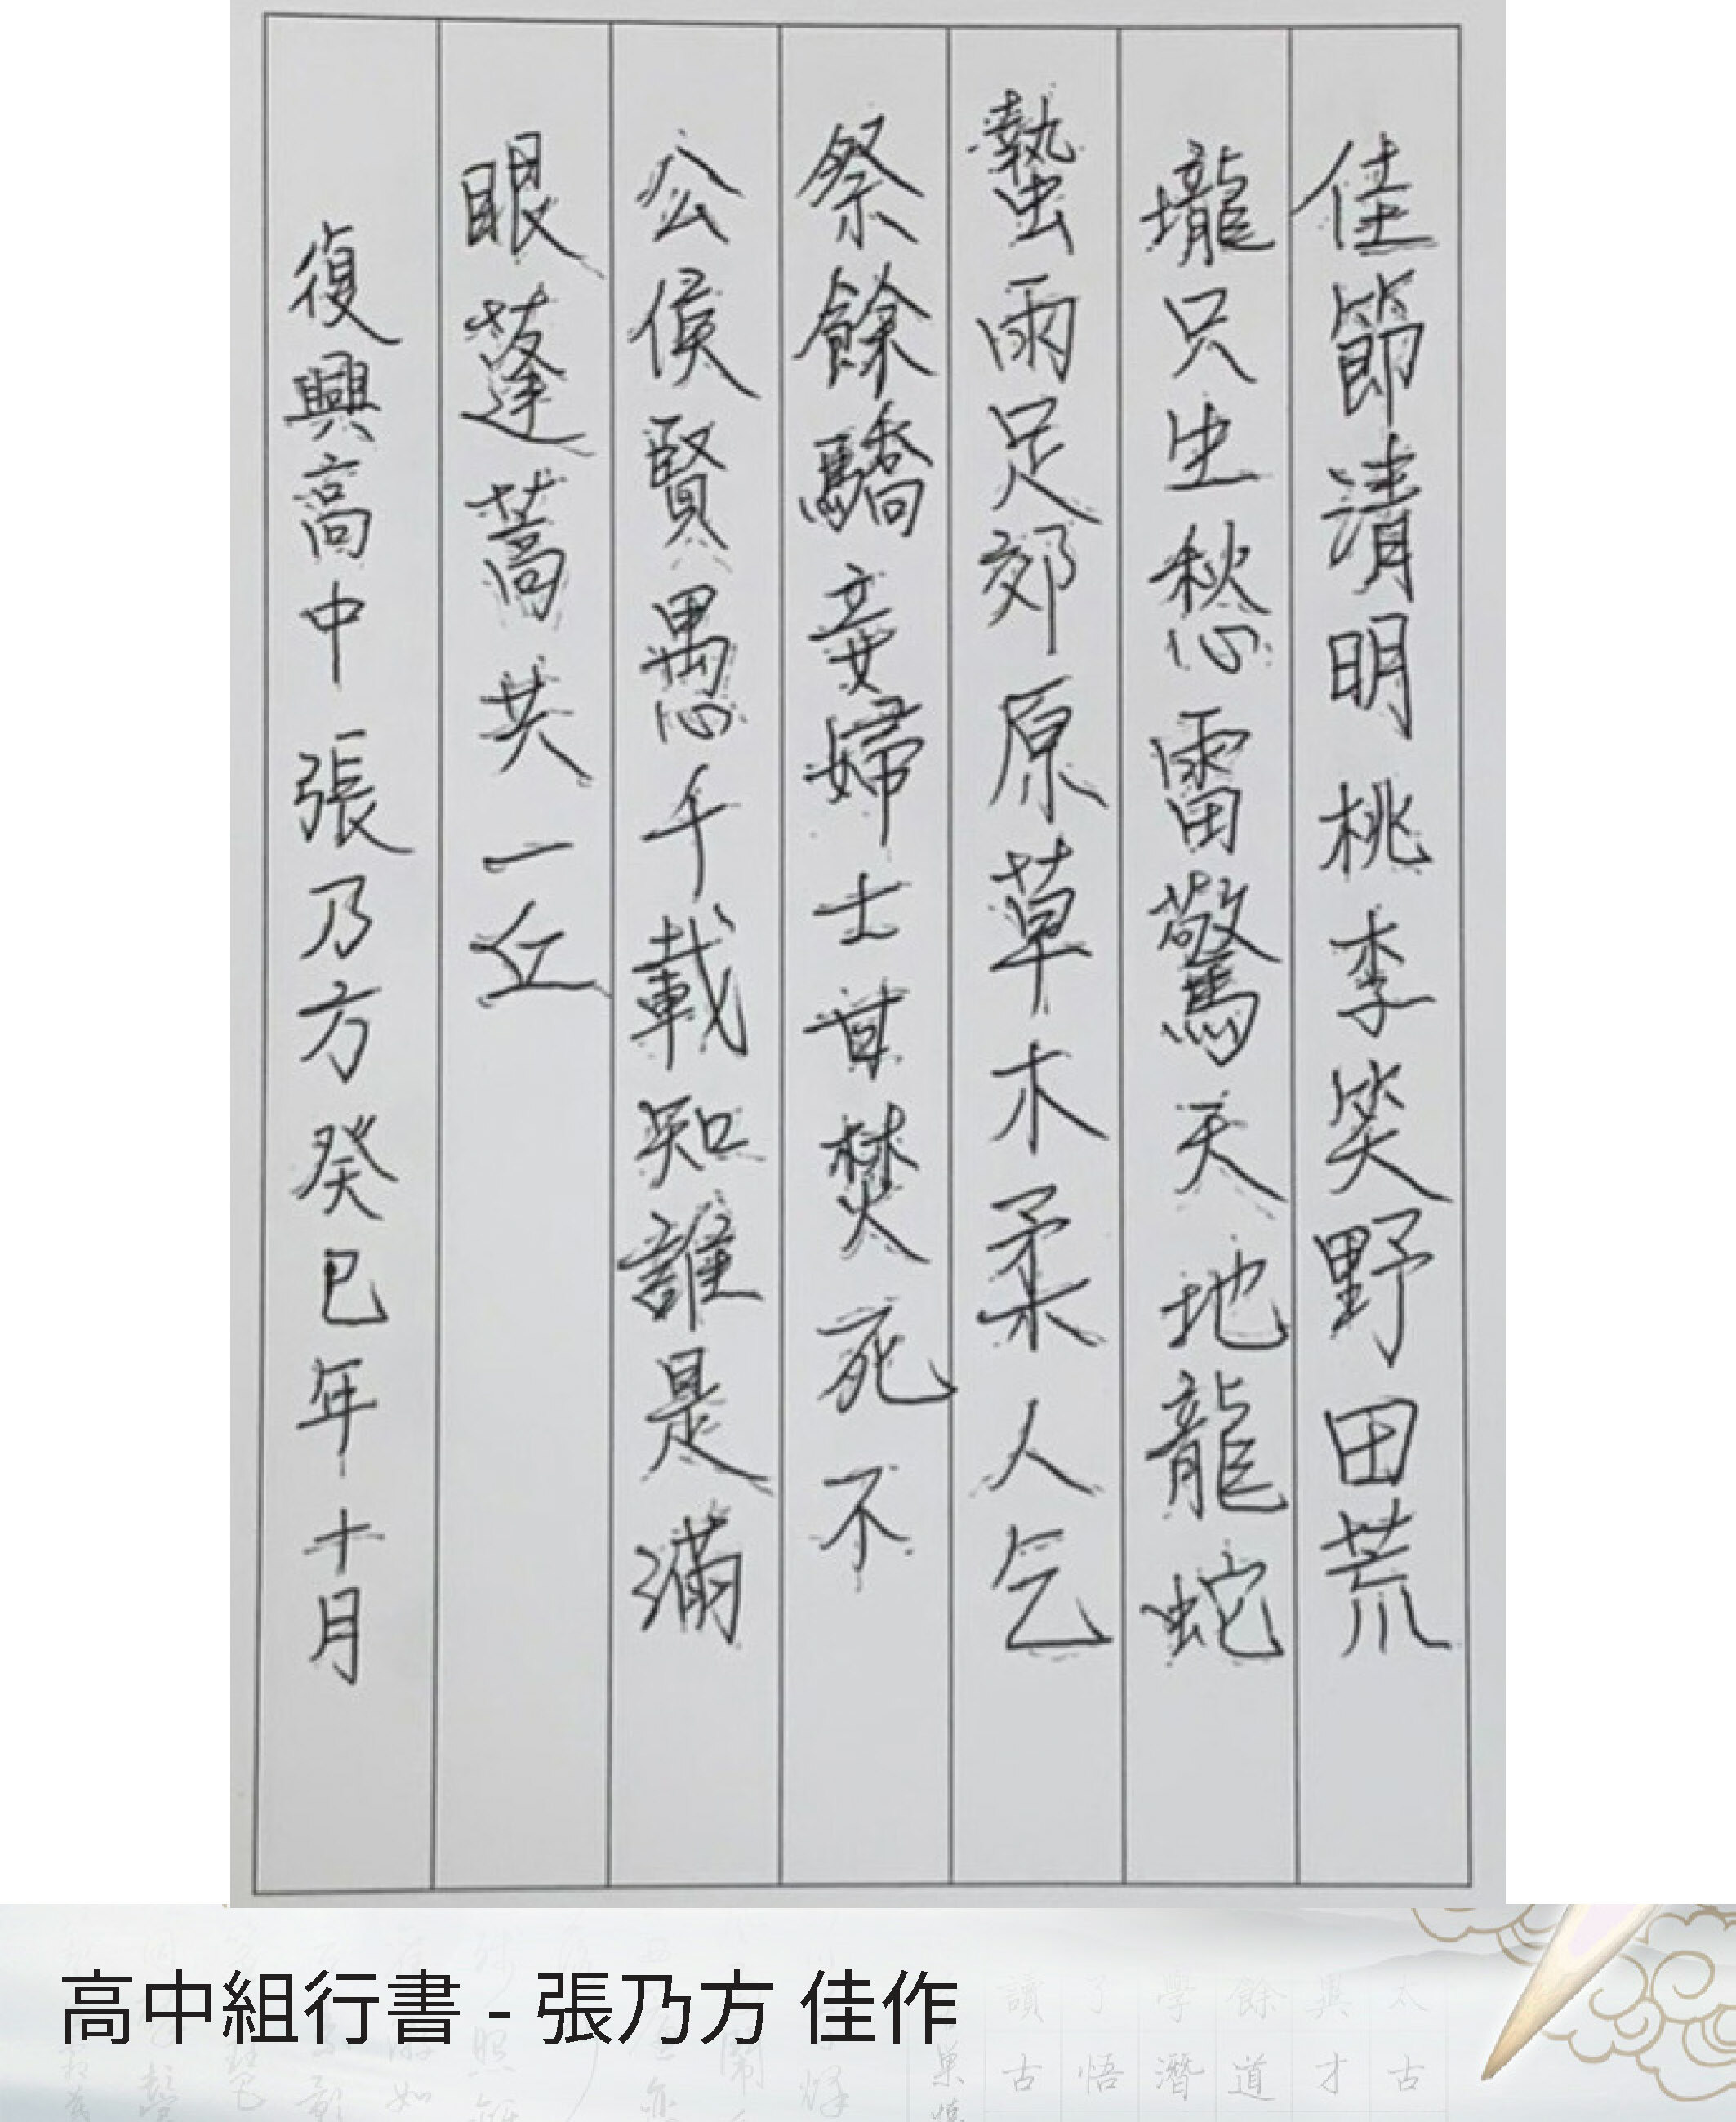 佳節清明桃李笑野田荒
壠只生愁雷驚天地龍蛇
蟄雨足郊原草木柔人乞
祭餘驕妾婦士甘焚死不
公侯賢愚千載知誰是滿
眼蓬蒿共一丘
復興高中張乃方癸巳年十月
高中組行書 - 張乃方 佳作